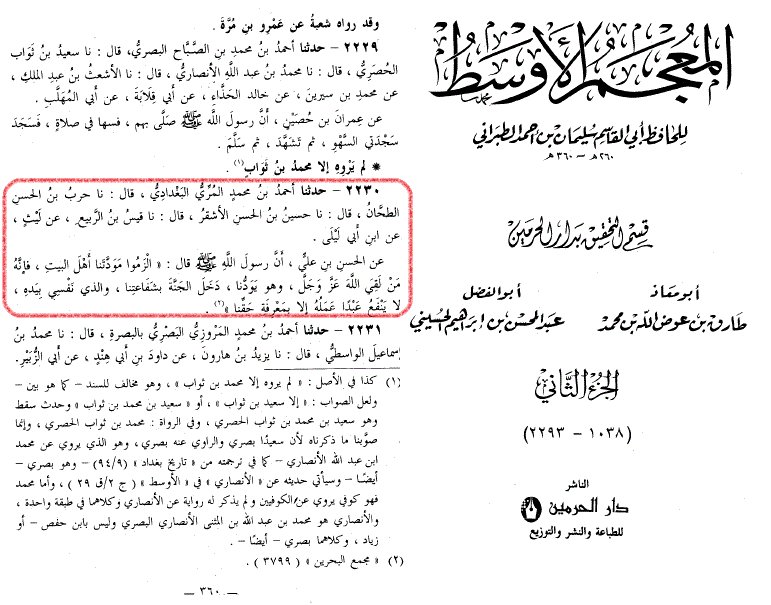 المعجم الأوسط
للحافظ أبي القاسم سليمان بن أحمد الطبراني
٢٦٠هـ - ٣٦٠هـ
قسم التحقيق بدار الحرمين
أبو معاذ
طارق بن عوض الله بن محمد
أبو الفضل
عبد المحسن بن إبراهيم الحسيني
الجزء الثاني
(١٠٣٨ - ٢٢٩٣)
الناشر
دار الحرمين
للطباعة والنشر والتوزيع
وقد رواه شعبةُ عن عَمْرِو بنِ مُرَّةَ .
٢٢٢٩ - حدثنا أحمدُ بنُ محمدِ بنِ الصَّبَّاحِ البصريُّ، قال : نا سعيدُ بنُ ثَوَابِ
الحُصَرِيُّ ، قال : نا محمدُ بنُ عبد اللَّهِ الأنصاريُّ ، قال : نا الأشعثُ بنُ عبدِ الملكِ ،
عن محمدِ بنِ سيرينَ ، عن خالد الحَذَّاءِ ، عن أبي قِلابَةَ ، عن أبي المُهَلَّبِ .
عن عِمرانَ بنِ حُصَيْنٍ ، أنَّ رسولَ اللَّهِ ﷺ صَلَّى بهم ، فسها في صلاةٍ ، فَسَجَدَ
سَجْدَتي السَّهْوِ ، ثم تَشَهَّدَ ، ثم سَلَّمَ .
* لم يَرْوِه إلا محمدُ بنُ ثَوَابٍ(١) .
٢٢٣٠ - حدثنا أحمدُ بنُ محمدٍ المُرِّيُّ البَغْداديُّ ، قال : نا حربُ بنُ الحسنِ
الطحَّانُ ، قال : نا حسينُ بنُ الحسنِ الأشقرُ ، قال : نا قيسُ بنُ الرَّبيعِ ، عن لَيْثٍ ،
عن ابنِ أبي لَيْلَى .
عن الحسنِ بنِ عليٍّ ، أنَّ رسولَ اللَّهِ ﷺ قال : « الْزَمُوا مَوَدَّتَنا أَهْلَ البيتِ ، فإنَّهُ
مَنْ لَقِيَ اللَّهَ عَزَّ وَجَلَّ ، وهو يَوَدُّنا ، دَخَلَ الجَنَّةَ بشَفاعتِنا ، والذي نَفْسِي بِيَدِهِ ،
لا يَنْفَعُ عَبْدًا عَمَلُهُ إلا بِمَعْرِفَةِ حَقِّنا »(٢) .
٢٢٣١ - حدثنا أحمدُ بنُ محمدٍ المَرْوَزِيُّ البَصْرِيُّ بالبصرةِ ، قال : نا محمدُ بنُ
إسماعيل الواسطيُّ ، قال : نا يزيدُ بنُ هارونَ ، عن داودَ بنِ أبي هِنْدٍ، عن أبي الزُّبَيْرِ.
(١) كذا في الأصل : « لم يروه إلا محمد بن ثواب » ، وهو مخالف للسند - كما هو بين -
ولعل الصواب : « إلا سعيد بن ثواب » ، أو « سعيد بن محمد بن ثواب » وحدث سقط
وهو سعيد بن محمد بن ثواب الحصري ، وفي الرواة : محمد بن ثواب الحصري ، وإنما
صوَّبنا ما ذكرناه لأن سعيدًا بصري والراوي عنه بصري ، وهو الذي يروي عن محمد
ابن عبد الله الأنصاري - كما في ترجمته من « تاريخ بغداد » (٩٤/٩) - وهو بصري -
أيضًا - وسيأتي حديثه عن « الأنصاري » في « الأوسط » ( ج ٢/ق ٢٩ ) ، وأما محمد
فهو كوفي يروي عن الكوفيين ولم يذكر له رواية عن الأنصاري وكلاهما في طبقة واحدة ،
والأنصاري هو محمد بن عبد الله بن المثنى الأنصاري البصري وليس بابن حفص أو
زياد ، وكلاهما بصري - أيضًا - .
(٢) « مجمع البحرين » ( ٣٧٩٩ ) .
— ٣٦٠ —